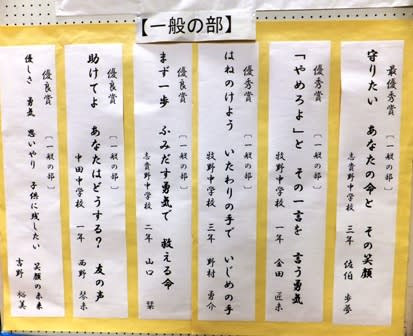 【一般の部】
最優秀賞 〔一般の部〕
守りたい あなたの命と その笑顔
志貴野中学校 三年 佐伯 歩夢
優秀賞 〔一般の部〕
「やめろよ」と その一言を 言う勇気
牧野中学校 一年 金田 匠未
優秀賞 〔一般の部〕
はねのけよう いたわりの手で いじめの手
牧野中学校 三年 野村 勇介
優良賞 〔一般の部〕
まず一歩 ふみだす勇気で 救える命
志貴野中学校 二年 山口 栞
優良賞 〔一般の部〕
助けてよ あなたはどうする? 友の声
中田中学校 一年 西野 琴未
優良賞 〔一般の部〕
優しさ 勇気 思いやり 子供に残したい 笑顔の未来
吉野 裕美